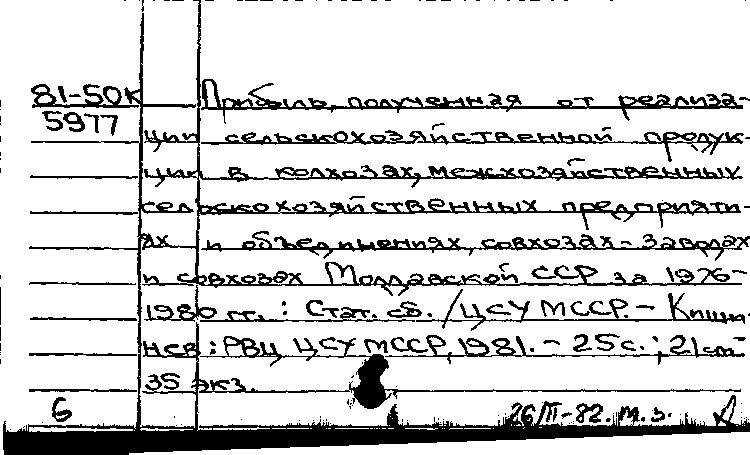 81-50К Прибыль, полученная от реализа-
5977 ции сельскохозяйственной продук-
ции в колхозах, межхозяйственных
сельскохозяйственных предприяти-
ях и объединениях, совхозах-заводах
и совхозах Молдавской ССР за 1976-
1980 гг. : Стат. сб. / ЦСУ МССР. - Киши-
нев : РВЦ ЦСУ МССР, 1981. - 25 с. ; 21 cm
35 экз.
6 26/III-82. т. з.